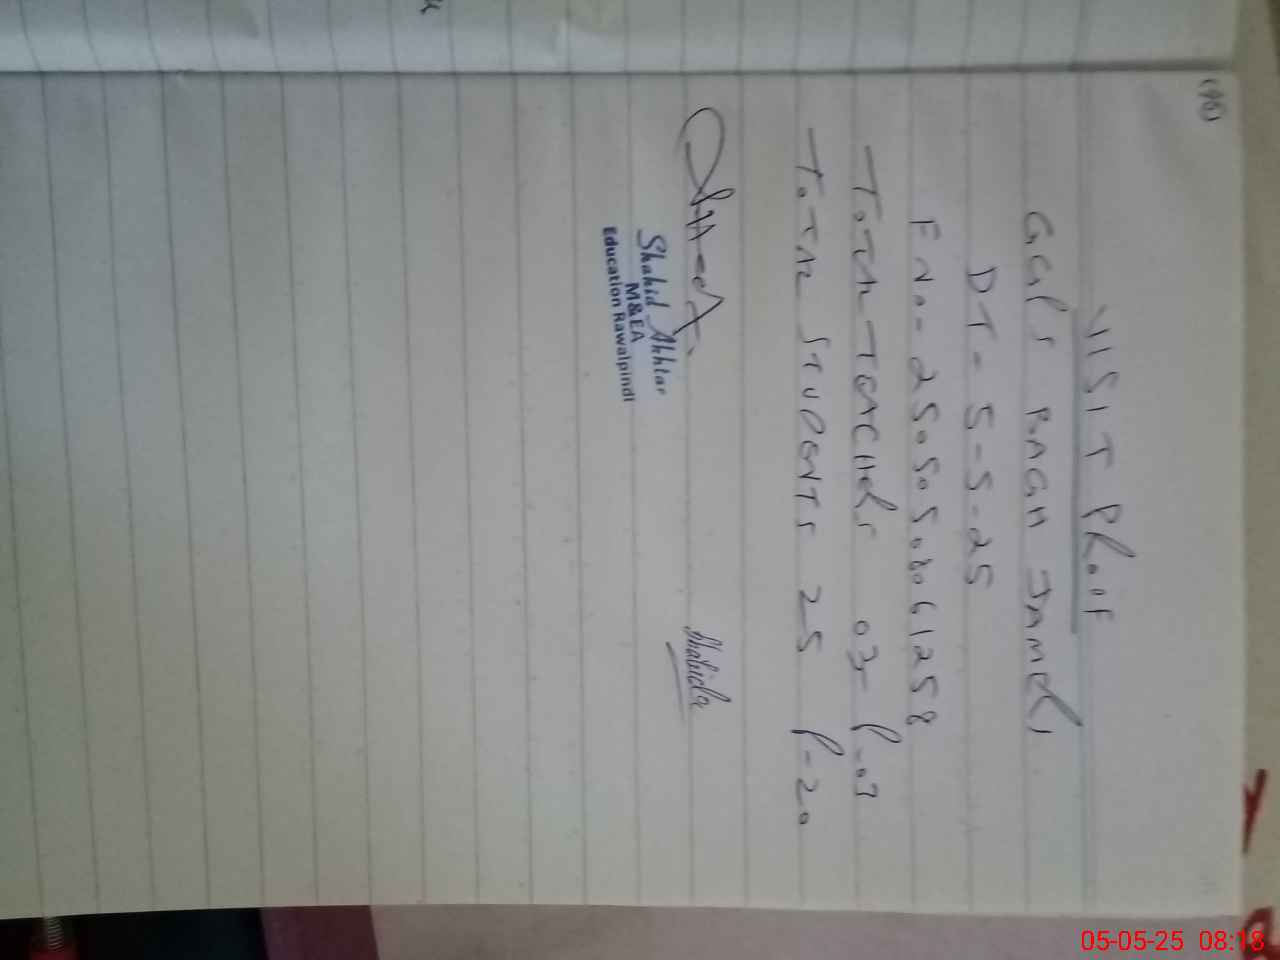 (46)
VISIT PROOF
GGPS BAGH JAMERI
DT- 5-5-25
F No- 25050508061258
TOTAL TEACHERS 03 P-03
TOTAL STUDENTS 25 P-20
Shahida
Shahid Akhtar
M&EA
Education Rawalpindi
05-05-25 08:18